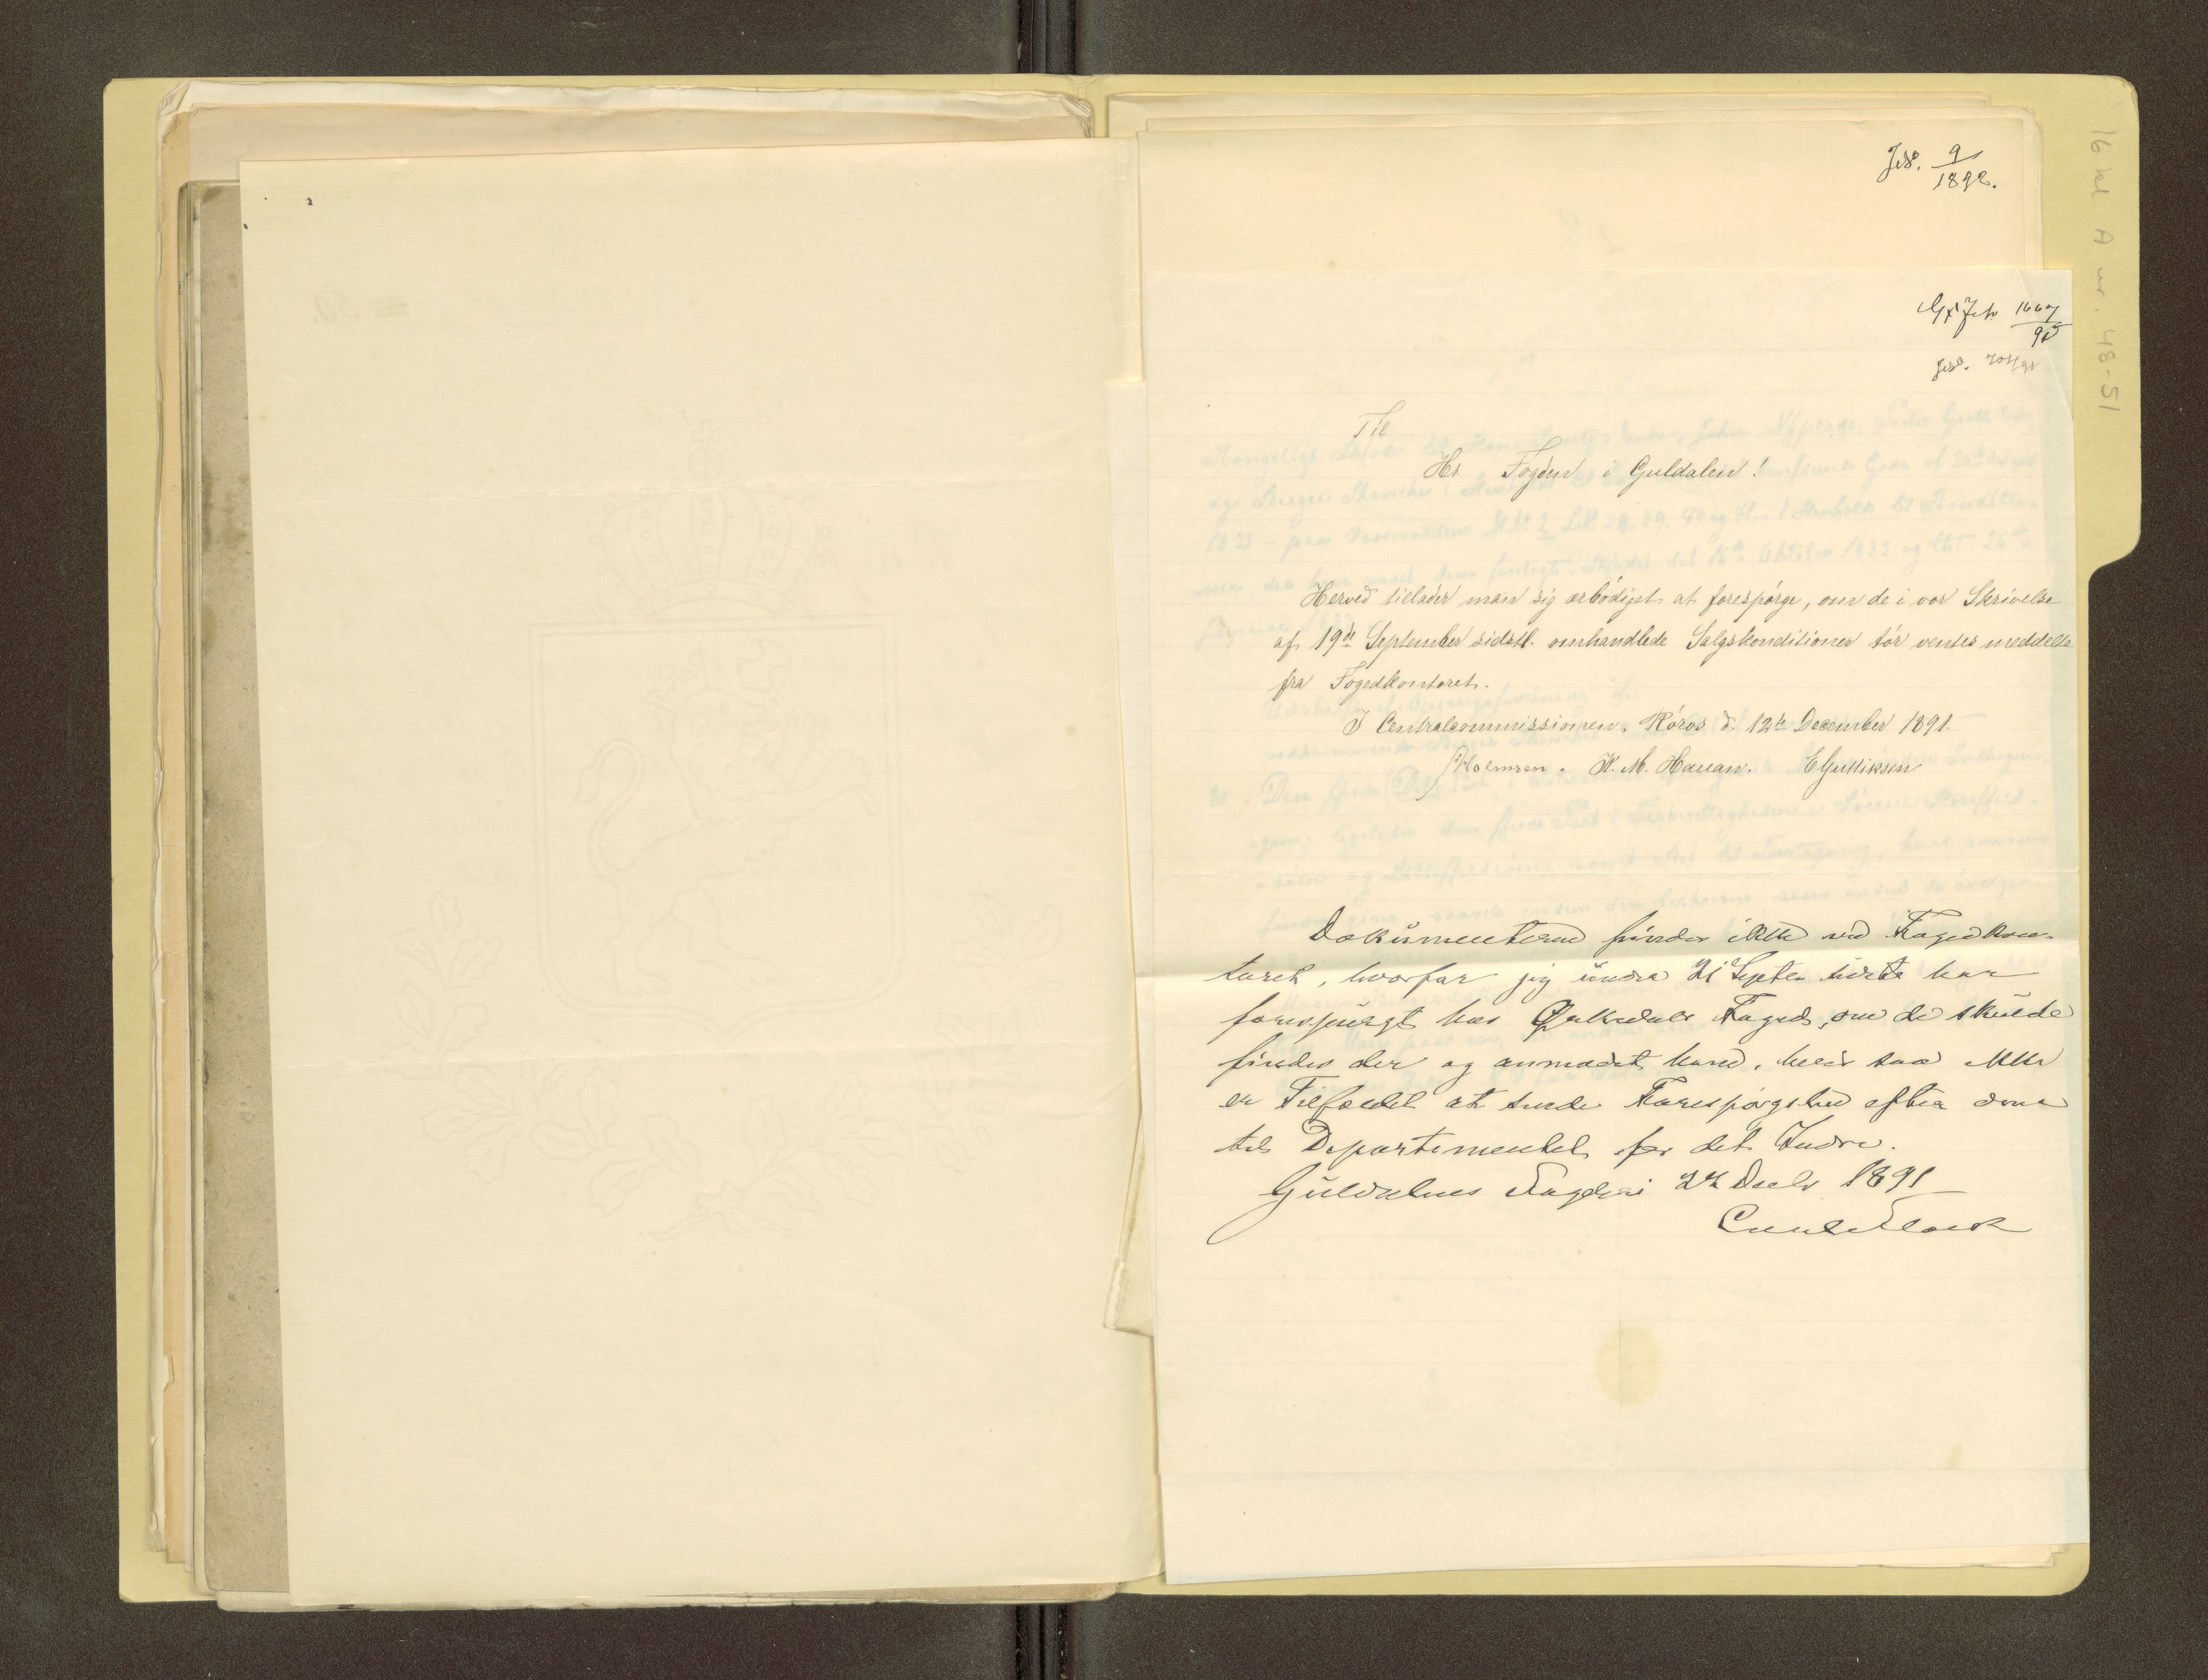 Jr№. 9/1892.
16 kl A nr. 48-51
Gf Jr 1667/91
Jr№. 703/91
Til
Hr. Fogden i Guldalen!
Herved tillader man sig ærbödigst at forespörge, om de i vor Skrivelse
af 19de September sidstl. omhandlede Salgskonditioner tör ventes meddelte
fra Fogedkontoret.
I Centralcommissionen, Röros d. 12te December 1891.
Holmsen. K. M. Hauan. EGulliksen
Dokumenterne findes ikke ved Fogedkon-
toret, hvorfor jeg under 21 Septbr sidste har
forespurgt hos Orkedals Foged, om de skulde
findes der og anmodet ham, hvis saa ikke
er Tilfældet at sende Forespörgslen efter dem
til Departementet for det Indre.
Guldalens Fogderi 22 Decbr 1891